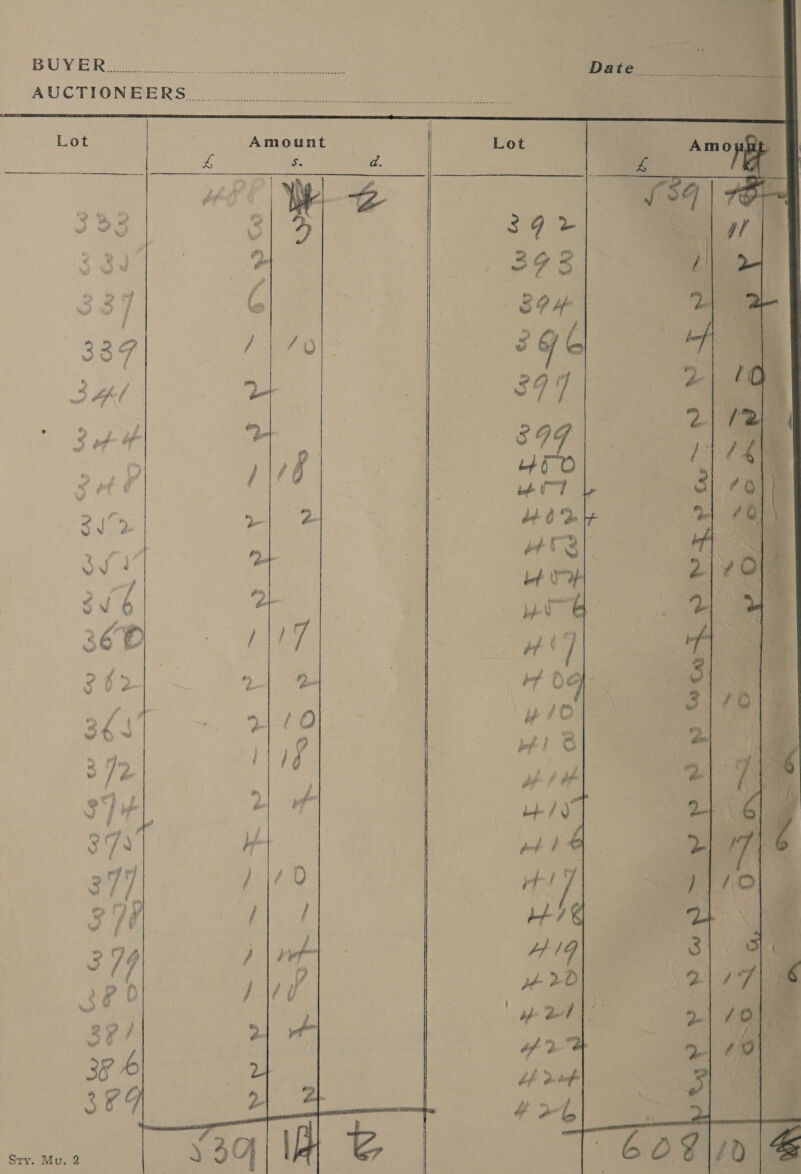 BUYER Date
AUCTIONEERS
Lot Amount
£ s. d.
333 3 3
335 2
337 6
339 1 10
341 2
344 2
348 1 18
352 2 2
355 2
356 2
360 1 17
362 2 2
365 2 10
372 1 18
374 2 4
375 4
377 1 10
378 1 1
379 1 4
380 1 18
381 2 4
386 2
389 2 2
539
Lot Amount
£
539
392 11
393 1 2
394 2 2
396 4
397 2 10
399 2 12
400 1 16
401 3 10
402 2 10
403 4
404 2 10
406 2 2
407 4
409 3
410 3 10
413 2
414 2 7 6
415 2 6
416 2 7 6
417 1 10
418 2
419 3 3
420 2 17 6
421 2 10
422 2 10
424 3
426 2
608 10
Sty. Mu. 2